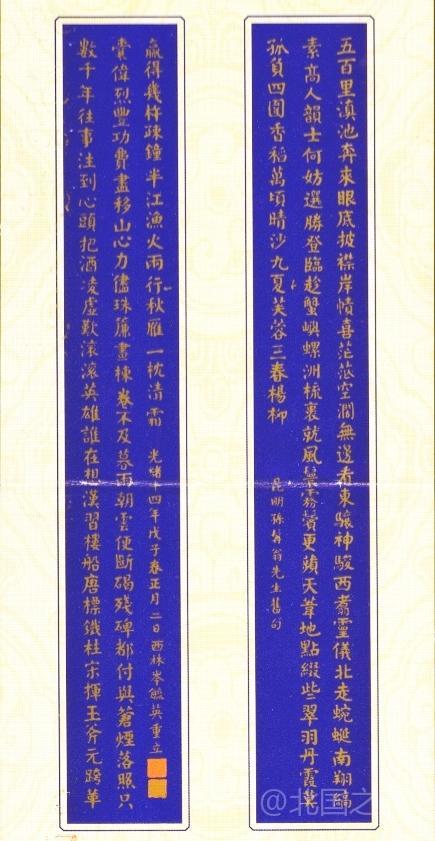 五百里滇池奔來眼底披襟岸幘喜茫茫空闊無邊看東驤神駿西翥靈儀北走蜿蜒南翔縞
素高人韻士何妨選勝登臨趁蟹嶼螺洲梳裹就風鬟霧鬢更蘋天葦地點綴些翠羽丹霞莫
孤負四圍香稻萬頃晴沙九夏芙蓉三春楊柳
昆明孫髯翁先生舊句
數千年往事注到心頭把酒凌虛歎滾滾英雄誰在想漢習樓船唐標鐵柱宋揮玉斧元跨革
囊偉烈豐功費盡移山心力儘珠簾畫棟卷不及暮雨朝雲便斷碣殘碑都付與蒼煙落照只
贏得幾杵疎鐘半江漁火兩行秋雁一枕清霜
光緒十四年戊子春正月二日西林岑毓英重立
@北国之